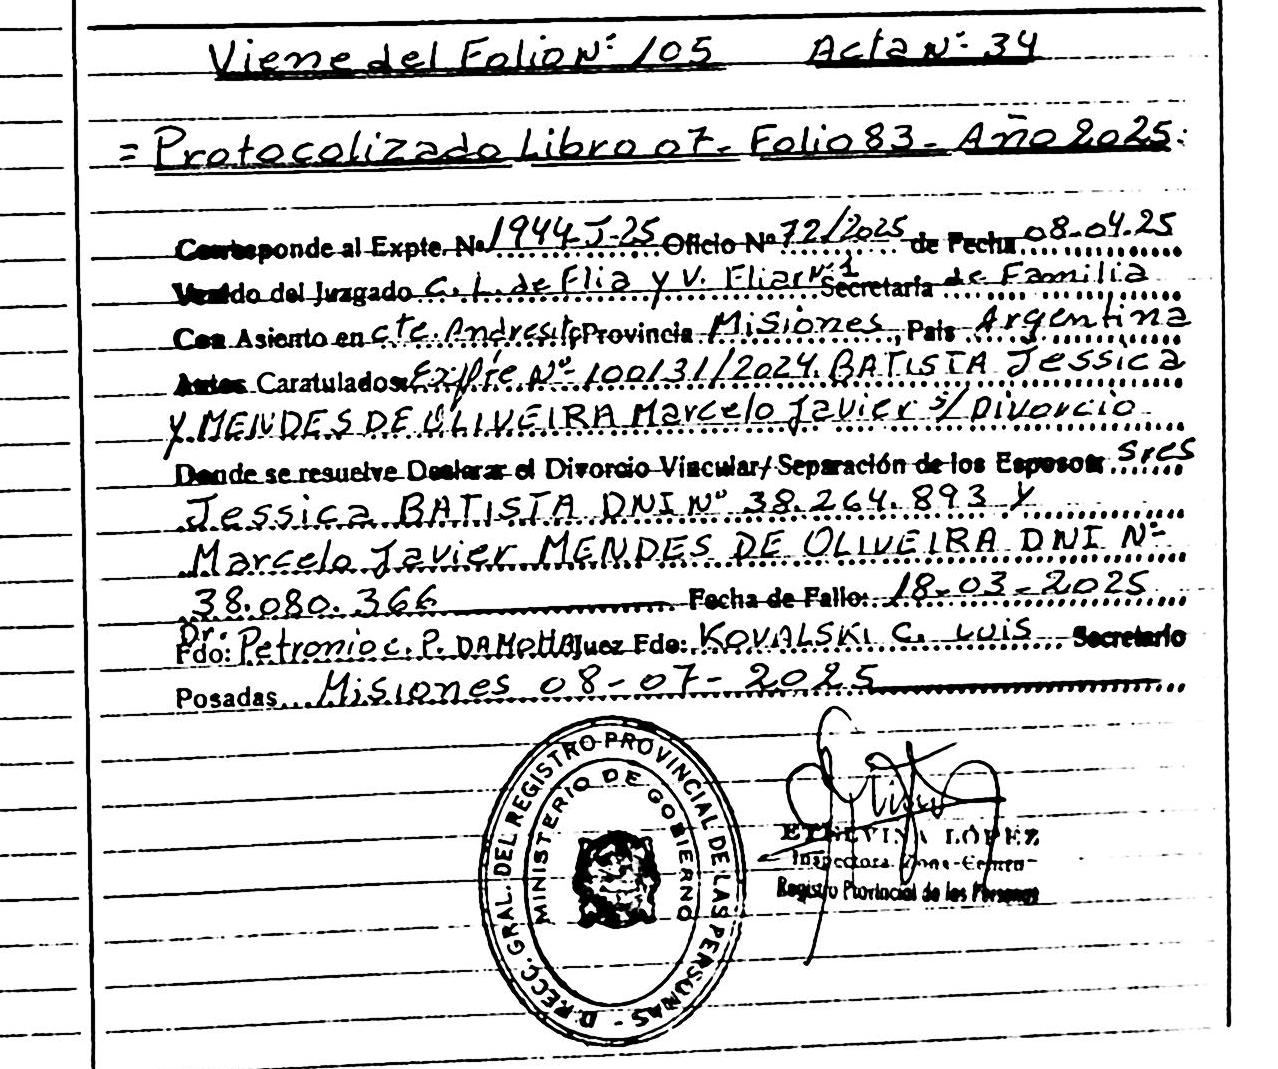 Viene del Folio Nº 105 Acta Nº 34
= Protocolizado Libro 07- Folio 83- Año 2025:
Corresponde al Expte. Nº 1944-J-25 Oficio Nº 72/2025 de Fecha 08-04.25
Venido del Juzgado C. L. de Flia y V. Fliar Nº 1 Secretaría de Familia
Con Asiento en cte. Andresito, Provincia Misiones, País Argentina
Autos Caratulados: Expte Nº 100131/2024. BATISTA Jessica
Y MENDES DE OLIVEIRA Marcelo Javier s/ Divorcio
Donde se resuelve Declarar el Divorcio Vincular/ Separación de los Esposos: sres
Jessica BATISTA DNI Nº 38.264.893 y
Marcelo Javier MENDES DE OLIVEIRA DNI Nº
38.080.366 Fecha de Fallo: 18-03-2025
Fdo: Dr. Petronio C. P. DAMOHA Juez Fdo: KOVALSKI C. LUIS Secretario
Posadas Misiones 08-07-2025
D.RECC. GRAL. DEL REGISTRO PROVINCIAL DE LAS PERSONAS -
MINISTERIO DE GOBIERNO
ETELVINA LÓPEZ
Inspectora Zona-Centro-
Registro Provincial de las Personas